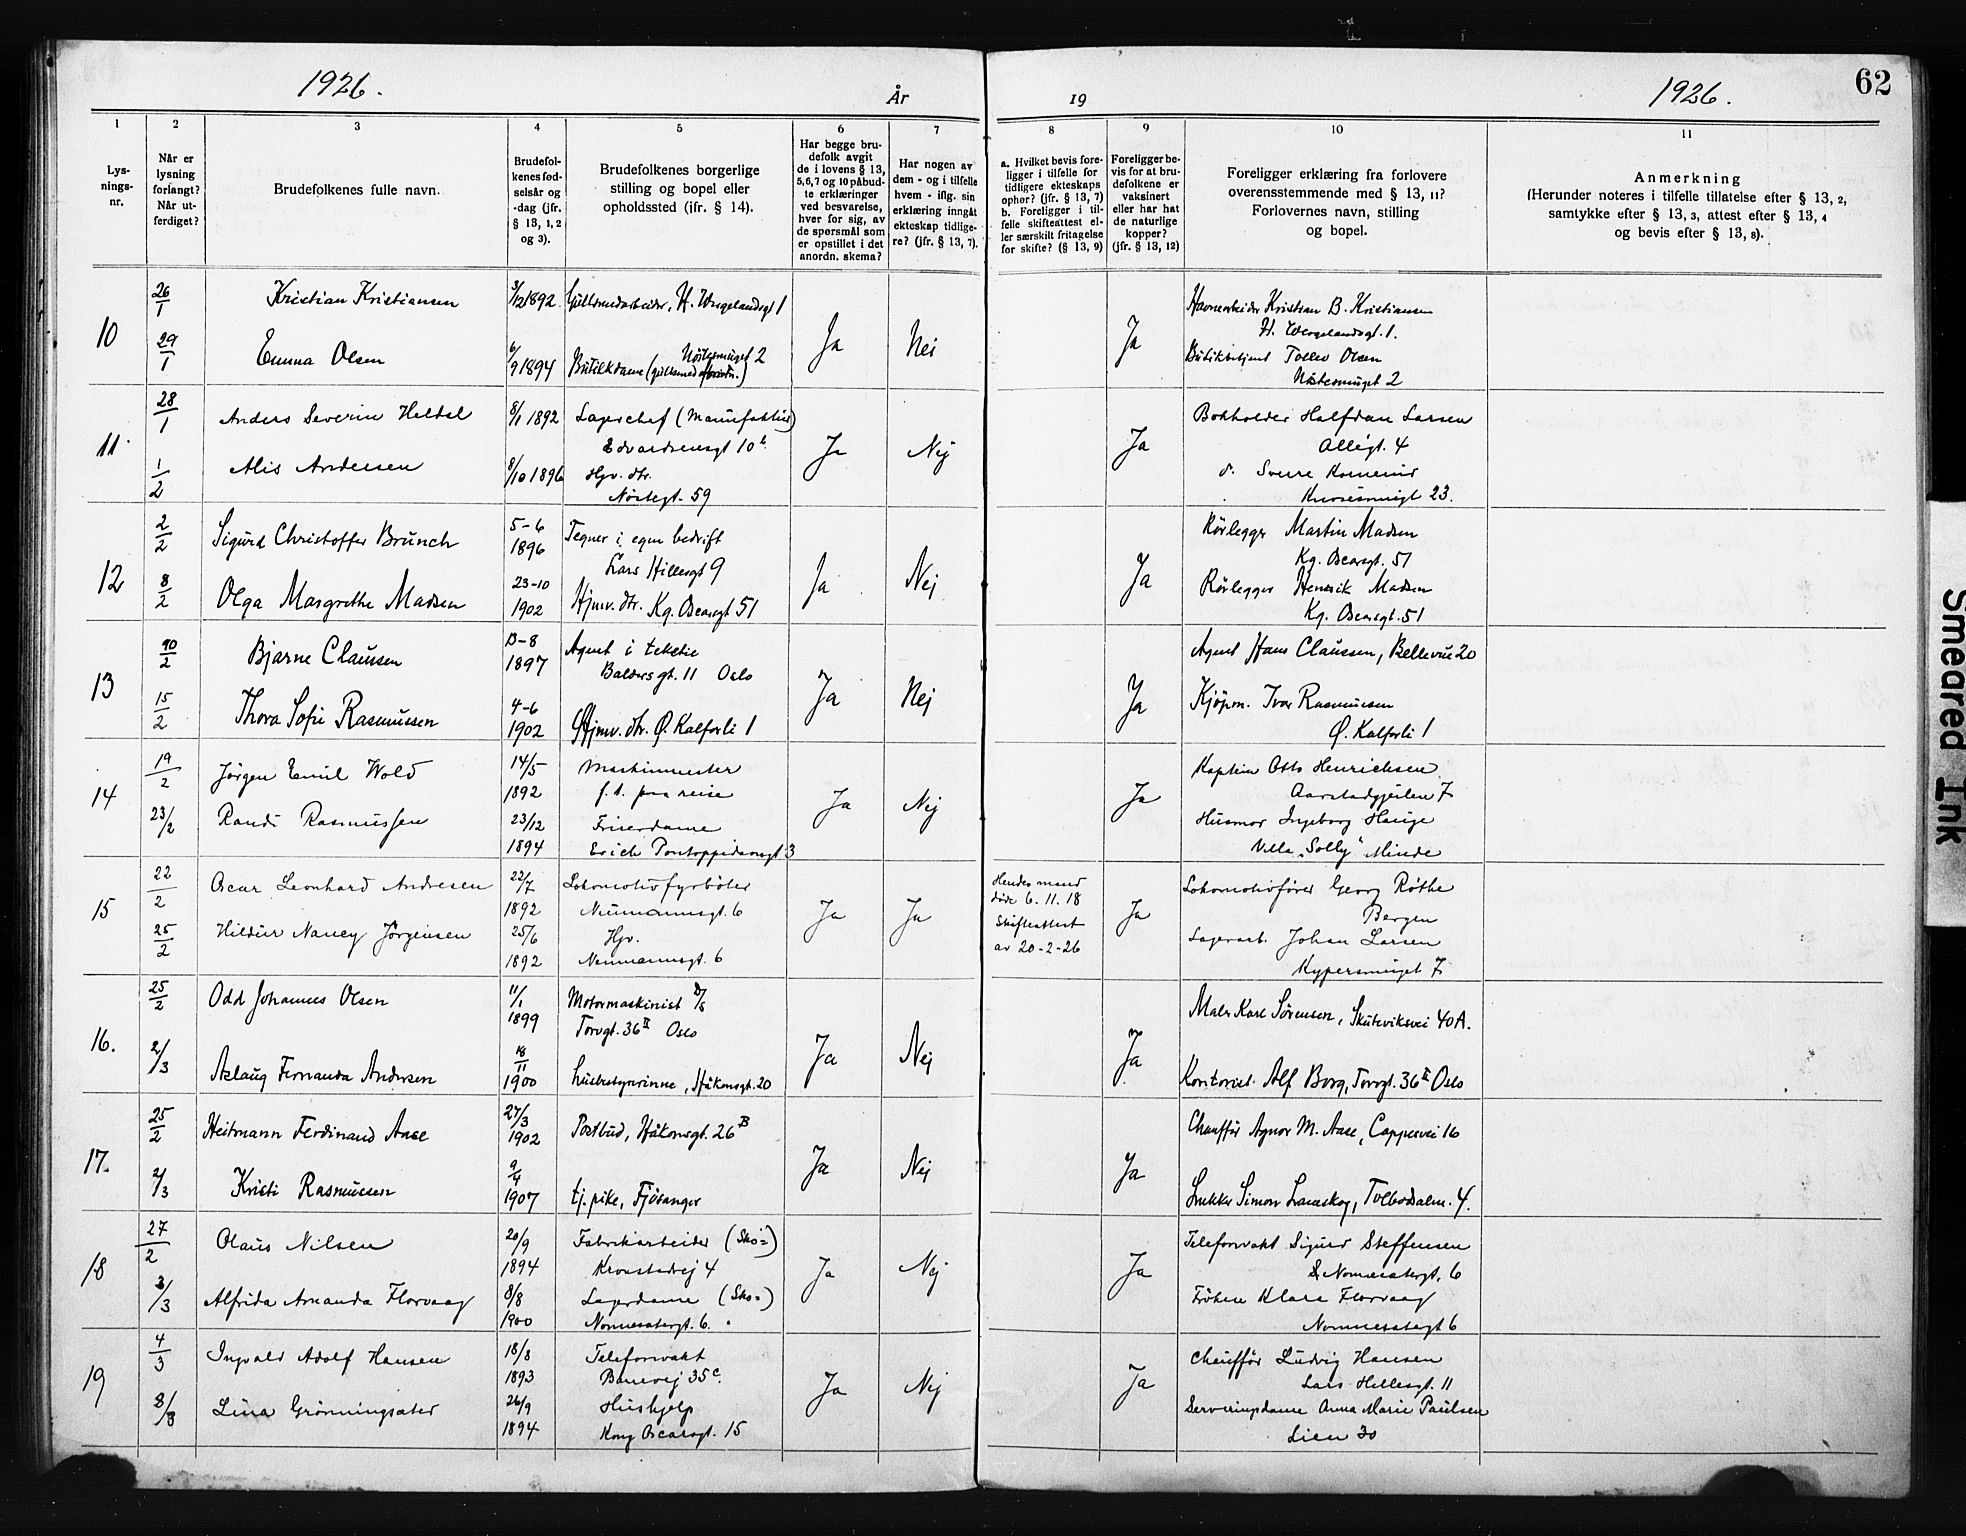 1926.
År
19
1926.
62
1
2
3
4
5
6
7
8
9
10
11
Lys-
nings-
nr.
Når er
lysning
forlangt?
Når ut-
ferdiget?
Brudefolkenes fulle navn.
Brudefol-
kenes fød-
selsår og
-dag (jfr.
§ 13, 1, 2
og 3).
Brudefolkenes borgerlige
stilling og bopel eller
opholdssted (jfr. § 14).
Har begge bru-
defolk avgit
de i lovens § 13,
5,6,7 og 10 påbud-
te erklæringer
ved besvarelse,
hver for sig, av
de spørsmål som
er opstillet i det
anordn. skema?
Har nogen av
dem - og i tilfelle
hvem - iflg. sin
erklæring inngått
ekteskap tidlige-
re? (jfr. § 13, 7).
a. Hvilket bevis fore-
ligger i tilfelle for
tidligere ekteskaps
ophør? (jfr. § 13, 7)
b. Foreligger i til-
felle skifteattest el-
ler særskilt fritagelse
for skifte? (§ 13, 9)
Foreligger be-
vis for at bru-
defolkene er
vaksinert
eller har hat
de naturlige
kopper?
(jfr. § 13, 12)
Foreligger erklæring fra forlovere
overensstemmende med § 13, 11?
Forlovernes navn, stilling
og bopel.
Anmerkning
(Herunder noteres i tilfelle tillatelse efter § 13, 2,
samtykke efter § 13, 3, attest efter § 13, 4
og bevis efter § 13, 8).
10
26/1
Kristian Kristiansen
3/12 1892
Gullsmedarbeider, H. Wergelandsgt 1
29/1
Emma Olsen
6/9 1894
Nøstesmuget 2
Butikkdame (gullsmed
Ja
Nei
Ja
Havnearbeider Kristian B. Kristiansen
H. Wergelandsgt. 1.
Butikkbetjent Tollev Olsen
Nøstesmuget 2
11.
28/1
Anders Severin Heldal
8/1 1892
Lagerchef (Manufaktur)
Edvardsensgt 10b
1/2
Alis Andersen
8/10 1896
Hjv. dtr.
Nøstegt. 59
Ja
Nej
Ja
Bokholder Halfdan Larsen
Allégt. 4
d. Sverre
Knøsesmugt 23.
12
2/2
Sigurd Christoffer Brunch
5-6
1896
Tegner i egen bedrift
Lars Hillesgt 9
8/2
Olga Margrethe Madsen
23-10
1902
Hjmv. dtr. Kg. Oscarsgt 51
Ja
Nej
Ja
Rørlegger Martin Madsen
Kg. Oscarsgt. 51
Rørlegger Henrik Madsen
Kg. Oscarsgt. 51
13
10/2
Bjarne Claussen
13-8
1897
Agent i tekstil
Baldersgt. 11 Oslo
15/2
Thora Sofie Rasmussen
4-6
1902
Hjmv. dtr. Ø. Kalfarli 1
Ja
Nej
Ja
Agent Hans Claussen, Bellevue 20
Kjøpm. Ivar Rasmussen
Ø. Kalfarli 1
14
19/2
Jørgen Emil Wold
14/5
1892
Maskinmester
f.t. paa reise
23/2
Randi Rasmussen
23/12
1894
Friserdame
Erich Pontoppidansgt 3
Ja
Nej
Ja
Kaptein Otto Henrichsen
Aarstadgjeilen 7
Husmor Ingeborg Hauge
Villa "Solly" Minde
15
22/2
Oscar Leonhard Andresen
22/7
1892
Lokomotivfyrbøter
Neumannsgt. 6
25/2
Hildur Nancy Jørgensen
25/6
1892
Hjv.
Neumannsgt. 6
Ja
Ja
Hendes mand
døde 6. 11. 18
Skifteattest
av 20-2-26
Ja
Lokomotivfører Georg Røthe
Bergen
Lagerarb. Johan Larsen
Kypersmuget 7
16.
25/2
Odd Johannes Olsen
11/1
1899
Motormaskinist D/S
Torvgt. 36 II Oslo
2/3
Aslaug Fernanda Andersen
18/11
1900
husbestyrerinne, Håkonsgt. 20
Ja
Nej
Ja
Maler Karl Sørensen, Skuteviksvei 40A.
Kontorist. Alf Borg, Torvgt. 36 II Oslo
17.
25/2
Heitmann Ferdinand Aase
27/3
1902
Postbud, Håkonsgt. 26B
2/3
Kristi Rasmussen
9/4
1907
tj. pike, Fjøsanger
Ja
Nej
Ja
Chauffør Agnar M. Aase, Cappesvei 16
Snekker Simon Lauskog, Tolbodalm. 4.
18
27/2
Olaus Nilsen
20/9
1894
Fabrikarbeider (Sko=)
Kronstadvej 4
3/3
Alfrida Amanda Florvaag
8/8
1900
Lagerdame (Sko=)
Nonnesætergt. 6.
Ja
Nej
Ja
Telefonvakt Sigurd Steffensen
Nonnesætergt. 6
Frøken Klara Florvaag
Nonnesætergt 6
19
4/3
Ingvald Adolf Hansen
18/8
1893
Telefonvakt
Banevej 35c.
8/3
Lina Grønningsæter
26/9
1894
Hushjelp
Kong Oscarsgt. 15
Ja
Nej
Ja
Chauffør Ludvig Hansen
Lars Hillesgt. 11
Serveringsdame Anna Marie Paulsen
Lien 30
Smeared Ink